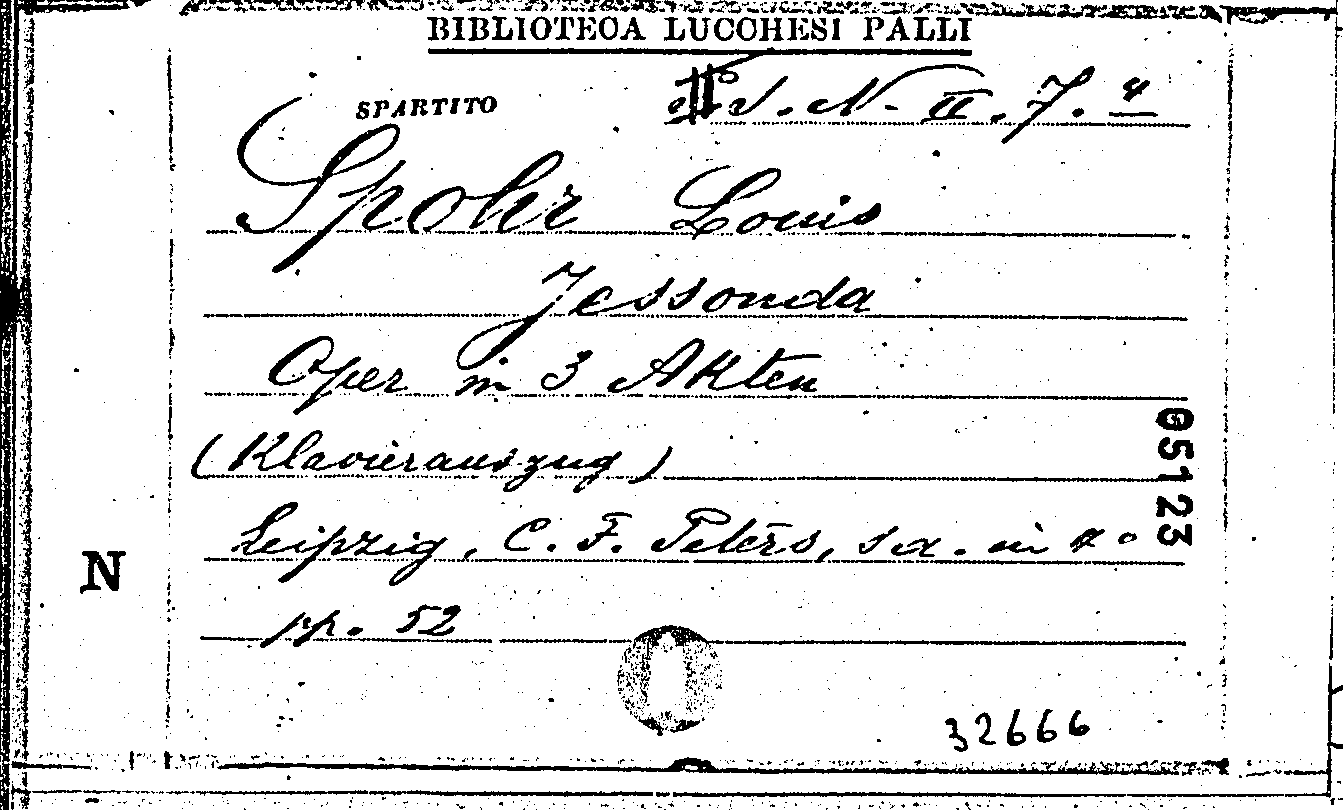 BIBLIOTECA LUCCHESI PALLI
SPARTITO
N. II. 7.
Spohr Louis
Jessonda
Oper in 3 Akten
(Klavierauszug)
05123
Leipzig, C. F. Peters, s a. in
N
pp. 52
32666